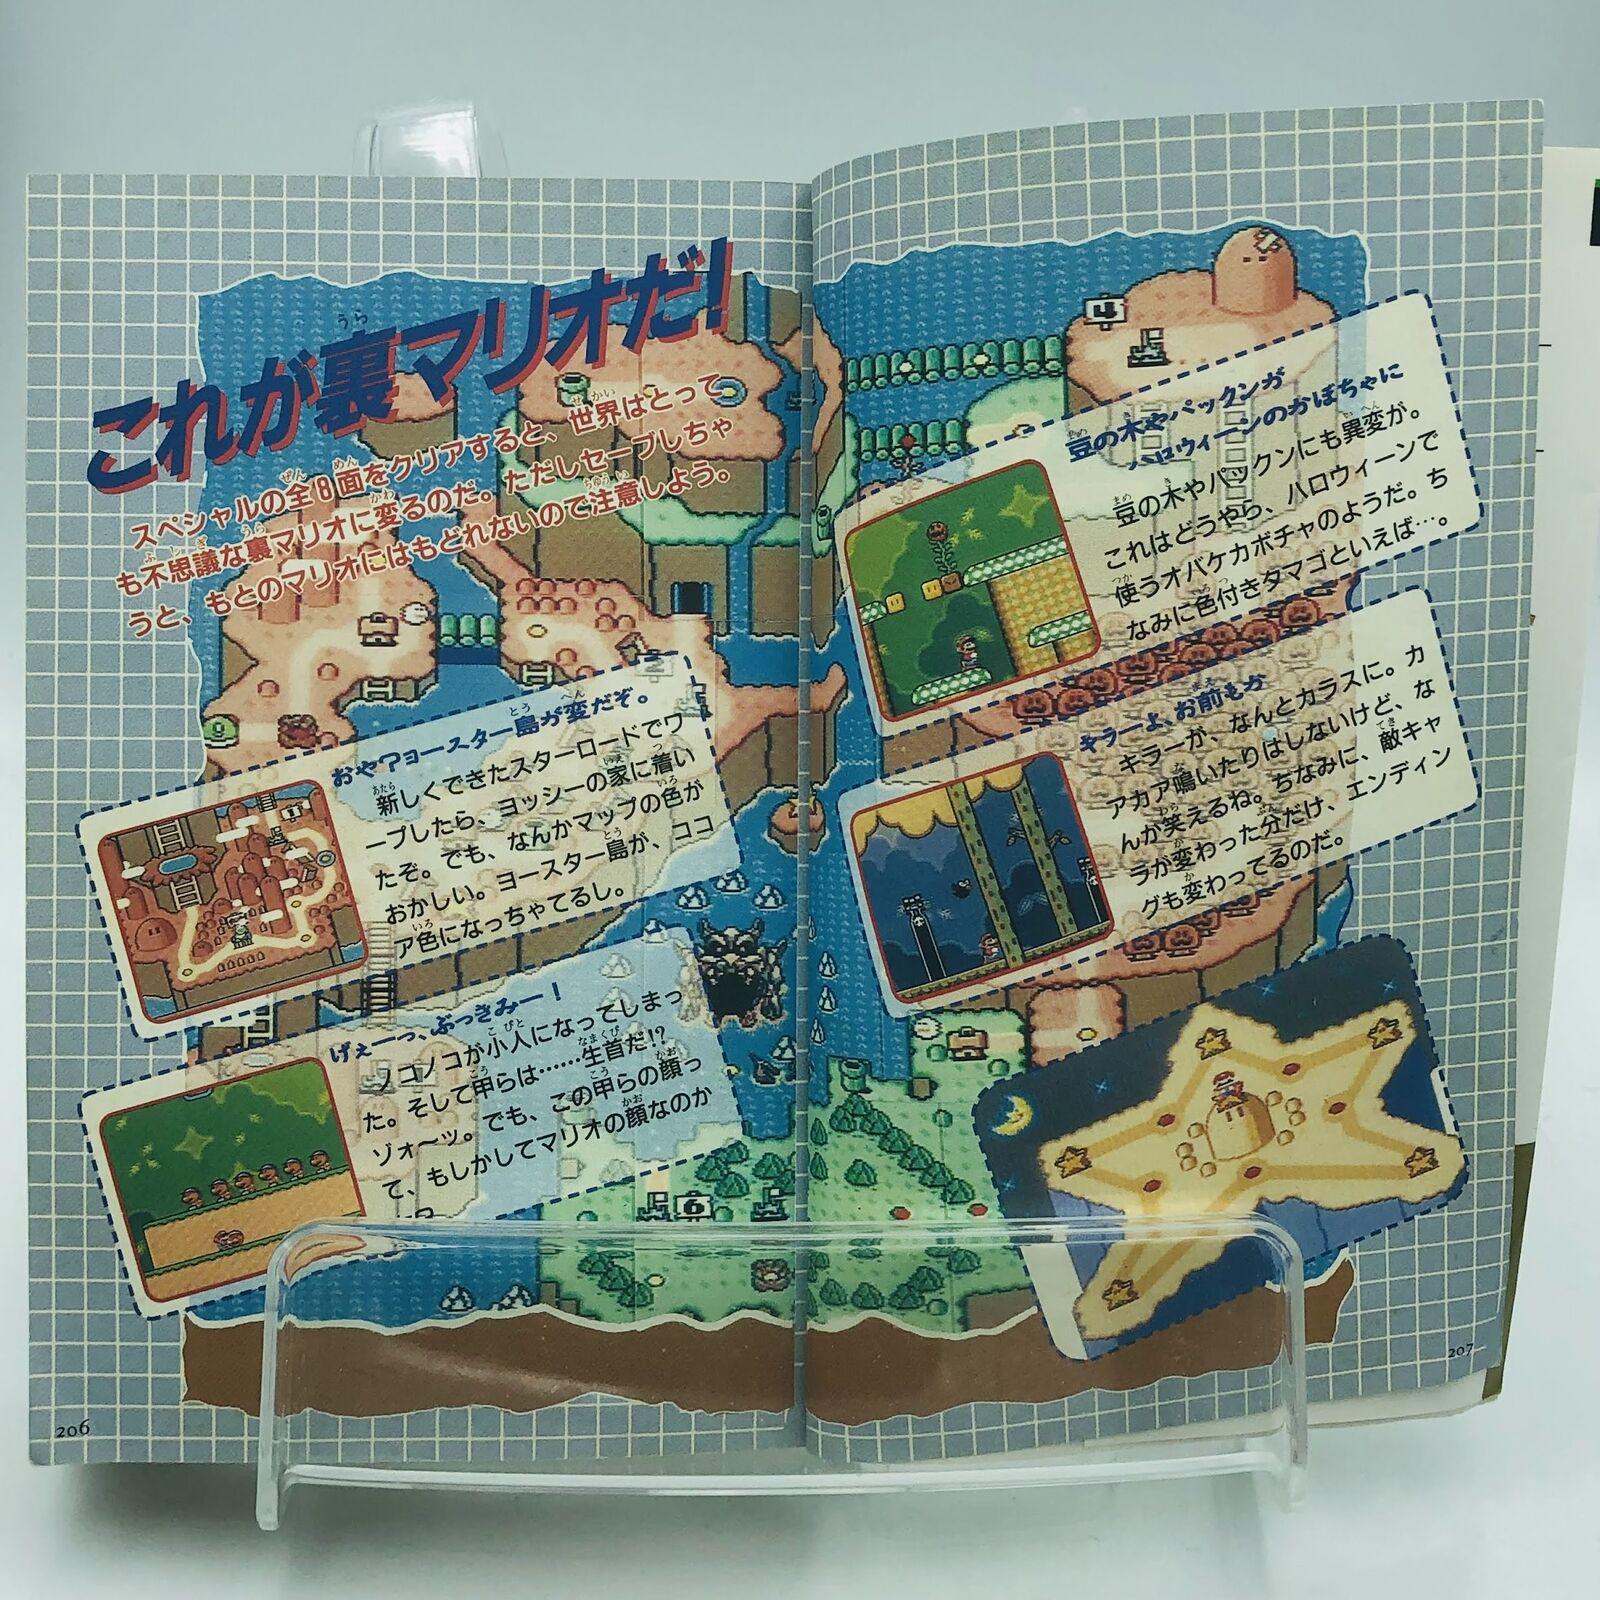 これが裏マリオだ!
スペシャルの全8面をクリアすると、世界はとって
も不思議な裏マリオに変るのだ。ただしセーブしちゃ
うと、もとのマリオにはもどれないので注意しよう。
おや?ヨースター島が変だぞ。
新しくできたスターロードでワ
ープしたら、ヨッシーの家に着い
たぞ。でも、なんかマップの色が
おかしい。ヨースター島が、ココ
ア色になっちゃてるし。
げぇーっ、ぶっきみー!
ノコノコが小人になってしまっ
た。そして甲らは……生首だ!?
ゾォ〜ッ。でも、この甲らの顔っ
て、もしかしてマリオの顔なのか
6
206
4
豆の木やパックンが
ハロウィーンのかぼちゃに
豆の木やパックンにも異変が。
これはどうやら、ハロウィーンで
使うオバケカボチャのようだ。ち
なみに色付きタマゴといえば…。
キラーよ、お前もか
キラーが、なんとカラスに。カ
アカア鳴いたりはしないけど、な
んか笑えるね。ちなみに、敵キャ
ラが変わった分だけ、エンディン
グも変わってるのだ。
207